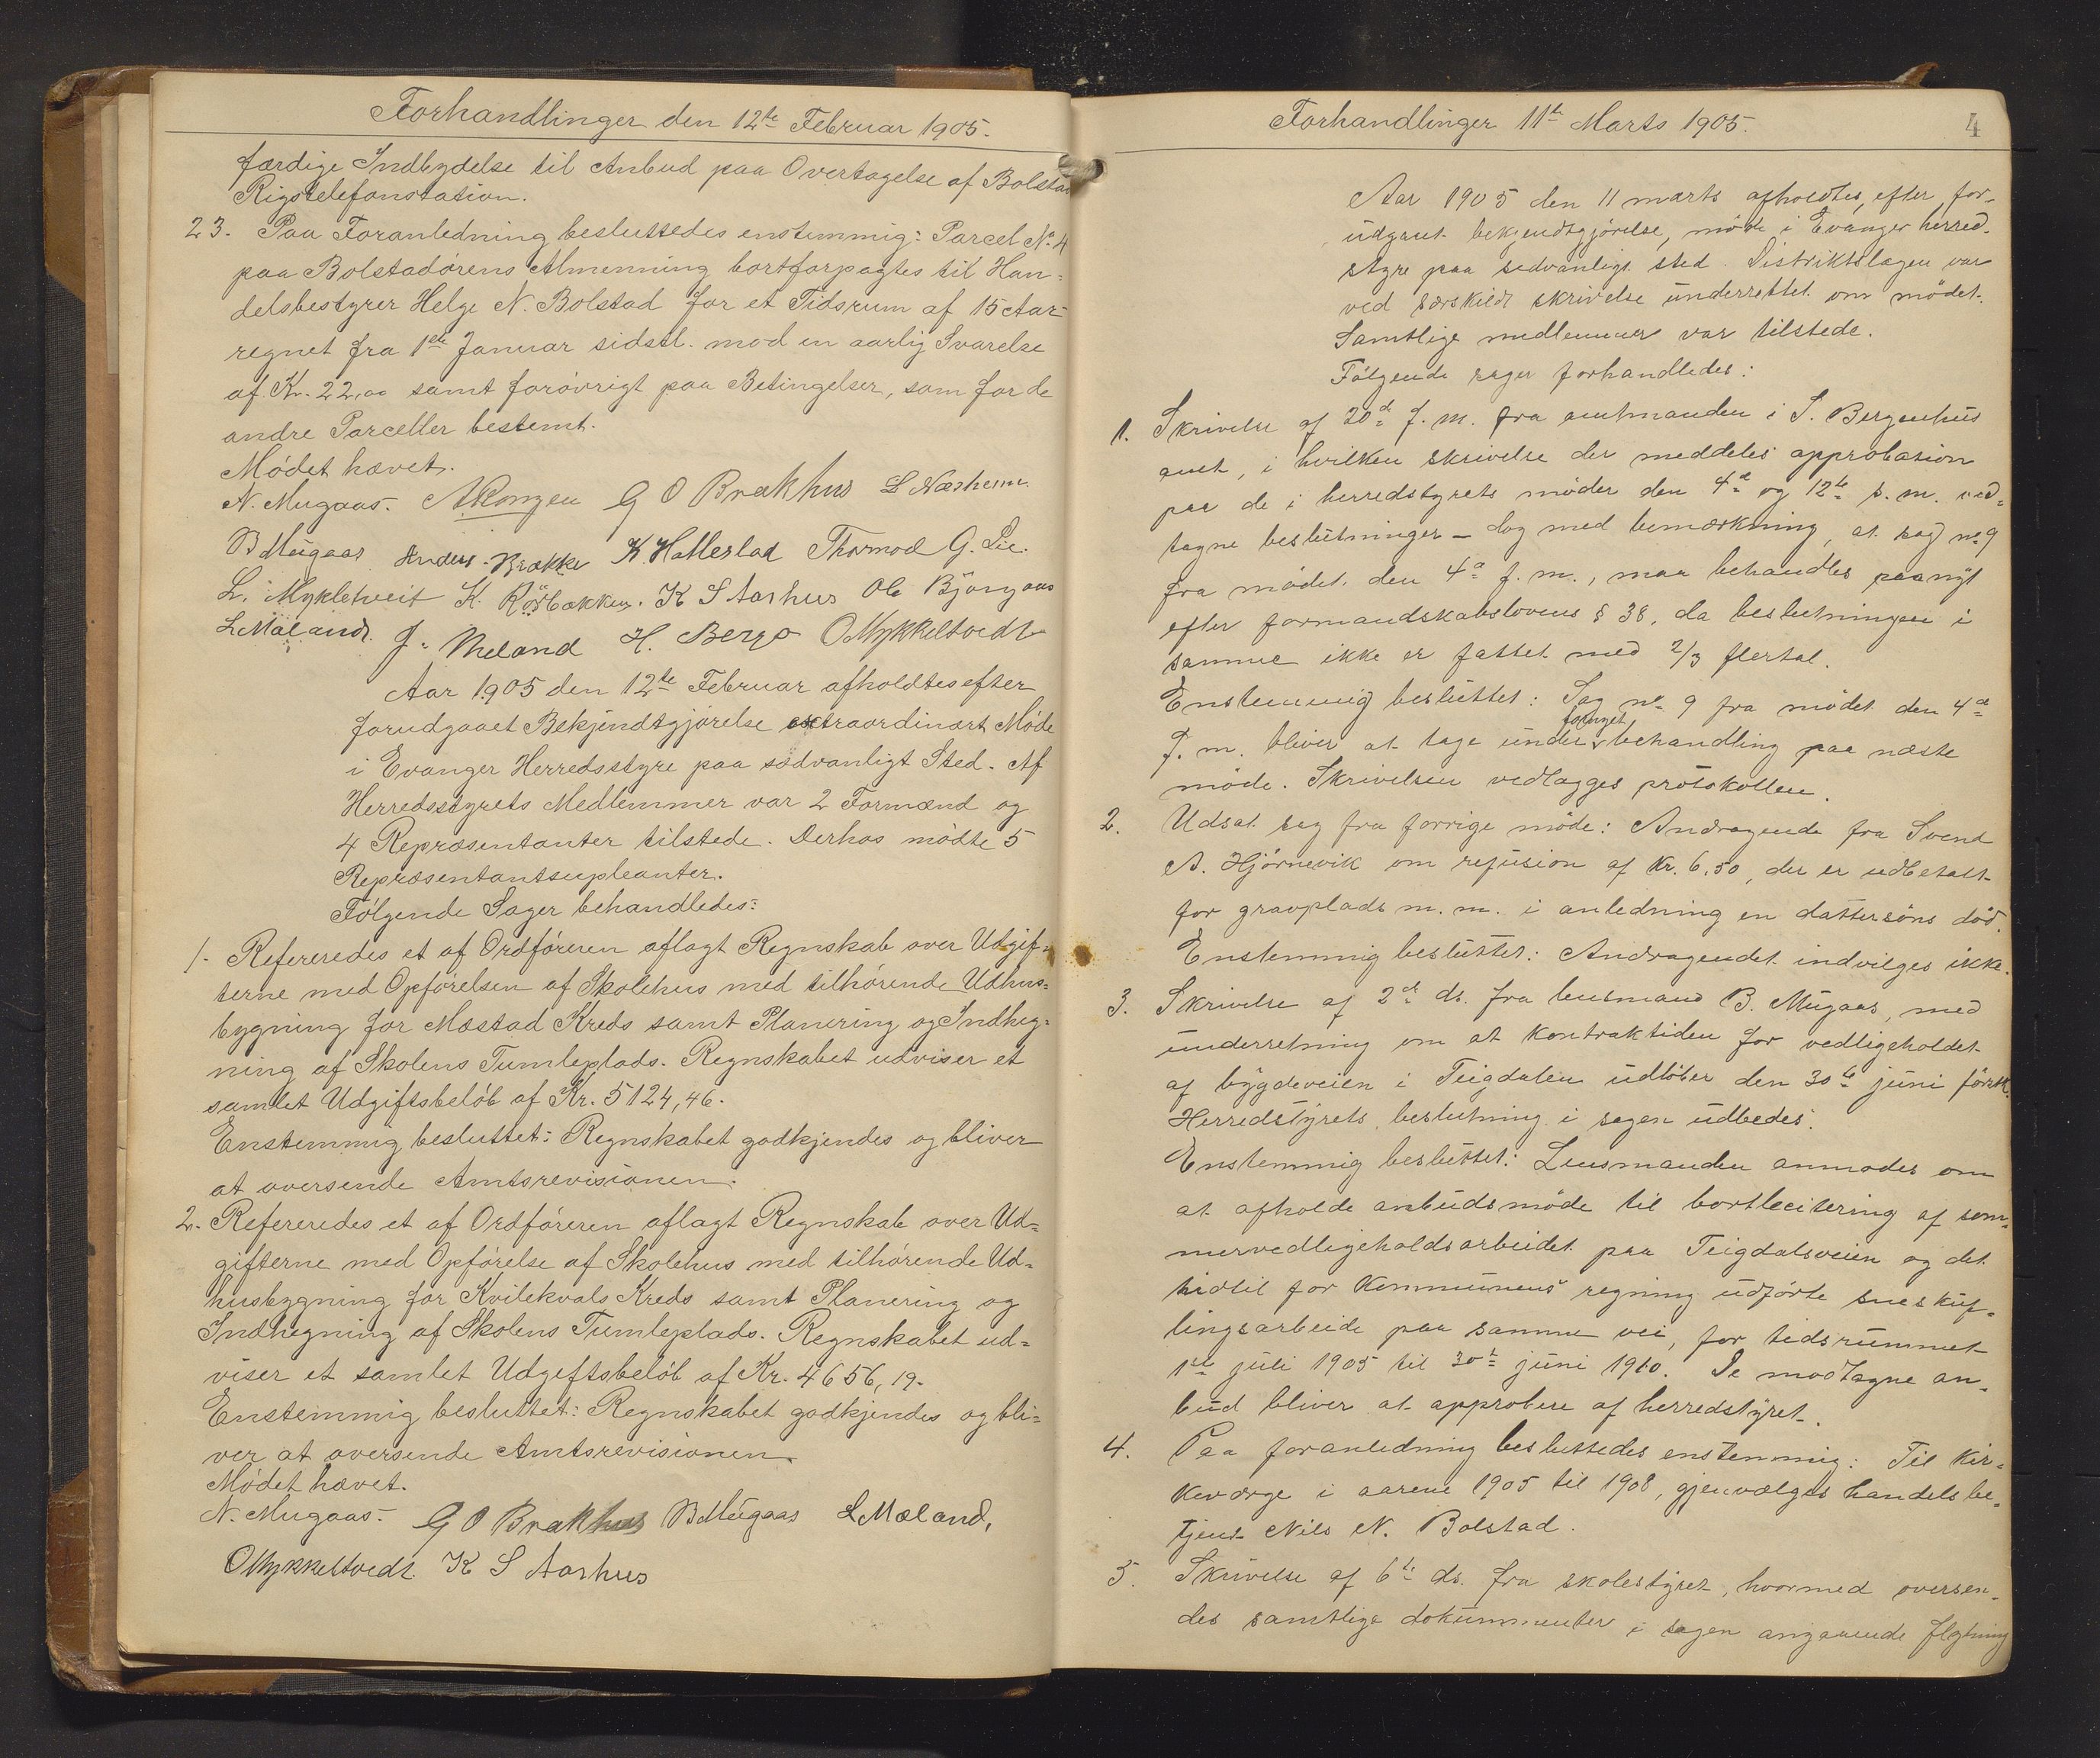 Forhandlinger den 12te Februar 1905.
færdige Indbydelse til Anbud paa Overtagelse af Bolstad
Rigstelefonstation.
23. Paa Foranledning besluttedes enstemmig: Parcel No 4
paa Bolstadørens Almenning bortforpagtes til Han-
delsbestyrer Helge N. Bolstad for et Tidsrum af 15 Aar
regnet fra 1ste Januar sidstl. mod en aarlig Svarelse
af Kr. 22,00 samt forøvrigt paa Betingelser, som for de
andre Parceller bestemt.
Mødet hævet.
N. Mugaas. AKongen G O Brækhus L Næsheim
B Mugaas Anders Brække K. Hallestad Thormod G. Lie.
L. Mykletveit K. Rösbakken. K S Aarhus Ole Björgaas
L Mæland. J. Meland H. Berge O Mykkeltvedt
Aar 1905 den 12te Februar afholdtes efter
forudgaaet Bekjendtgjørelse extraordinært Møde
i Evanger Herredsstyre paa sædvanligt Sted. Af
Herredsstyrets Medlemmer var 2 Formænd og
4 Repræsentanter tilstede. Derhos mødte 5
Repræsentantsupleanter.
Følgende Sager behandledes:
1. Refereredes et af Ordføreren aflagt Regnskab over Udgif-
terne med Opførelsen af Skolehus med tilhørende Udhus-
bygning for Mæstad Kreds samt Planering og Indheg-
ning af Skolens Tumleplads. Regnskabet udviser et
samlet Udgiftsbeløb af Kr. 5124,46.
Enstemmig besluttet: Regnskabet godkjendes og bliver
at oversende Amtsrevisionen.
2. Refereredes et af Ordføreren aflagt Regnskab over Ud-
gifterne med Opførelse af Skolehus med tilhørende Ud-
husbygning for Kvilekvals Kreds samt Planering og
Indhegning af Skolens Tumleplads. Regnskabet ud-
viser et samlet Udgiftsbeløb af Kr. 4656,19.
Enstemmig besluttet: Regnskabet godkjendes og bli-
ver at oversende Amtsrevisionen.
Mødet hævet.
N. Mugaas. G O Brækhus B Mugaas L Mæland,
O Mykkeltvedt. K S Aarhus
Forhandlinger 11te Marts 1905. 4
Aar 1905 den 11 marts afholdtes, efter for-
udgaaet bekjendtgjörelse, möde i Evanger herred-
styre paa sedvanligt sted. Distriktslægen var
ved særskildt skrivelse underrettet om mödet.
Samtlige medlemmer var tilstede.
Fölgende sager forhandledes:
1. Skrivelse af 20de f. m. fra amtmanden i S. Bergenhus
amt, i hvilken skrivelse der meddeles approbasion
paa de i herredstyrets möder den 4de og 12te s. m. ved-
tagne beslutninger - dog med bemærkning, at sag no 9
fra mödet den 4de f. m., maa behandles paanyt
efter formandskabslovens § 38, da beslutningen i
samme ikke er fattet med 2/3 flertal.
Enstemmig besluttet: Sag no 9 fra mödet den 4de
f. m. bliver at tage under fornyet behandling paa næste
möde. Skrivelsen vedlægges protokollen.
2. Udsat sag fra forrige möde: Andragende fra Svend
A. Hjörnevik om refusion af kr. 6,50, der er udbetalt
for gravplads m. m. i anledning en dattersöns död.
Enstemmig besluttet: Andragendet indvilges ikke.
3. Skrivelse af 2de ds. fra lensmand B. Mugaas, med
underretning om at kontraktiden for vedligeholdet
af bygdeveien i Teigdalen udlöber den 30te juni förstk.
Herredstyrets beslutning i sagen udbedes.
Enstemmig besluttet: Lensmanden anmodes om
at afholde anbudsmöde til bortlicitering af som-
mervedligeholdsarbeidet paa Teigdalsveien og det
hidtil for kommunens regning udförte sneskuf-
lingsarbeide paa samme vei, for tidsrummet
1ste juli 1905 til 30te juni 1910. De modtagne an-
bud bliver at approbere af herredstyret.
4. Paa foranledning besluttedes enstemmig: Til kir-
keværge i aarene 1905 til 1908, gjenvælges handelsbe-
tjent Nils N. Bolstad.
5. Skrivelse af 6te ds. fra skolestyret, hvormed oversen-
des samtlige dokummenter i sagen angaaende flytning